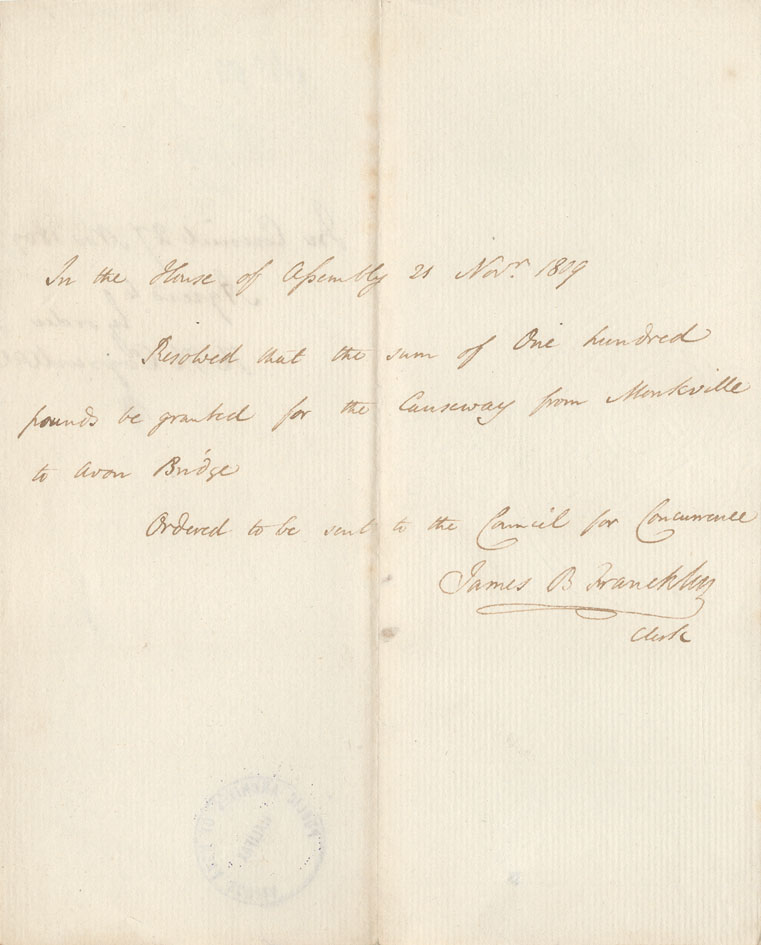 In the House of Assembly 21 Novr. 1809
Resolved that the sum of One hundred
pounds be granted for the Causeway from Monkville
to Avon Bridge
Ordered to be sent to the Council for Concurrence
James B Francklin
Clerk
PUBLIC ARCHIVES OF